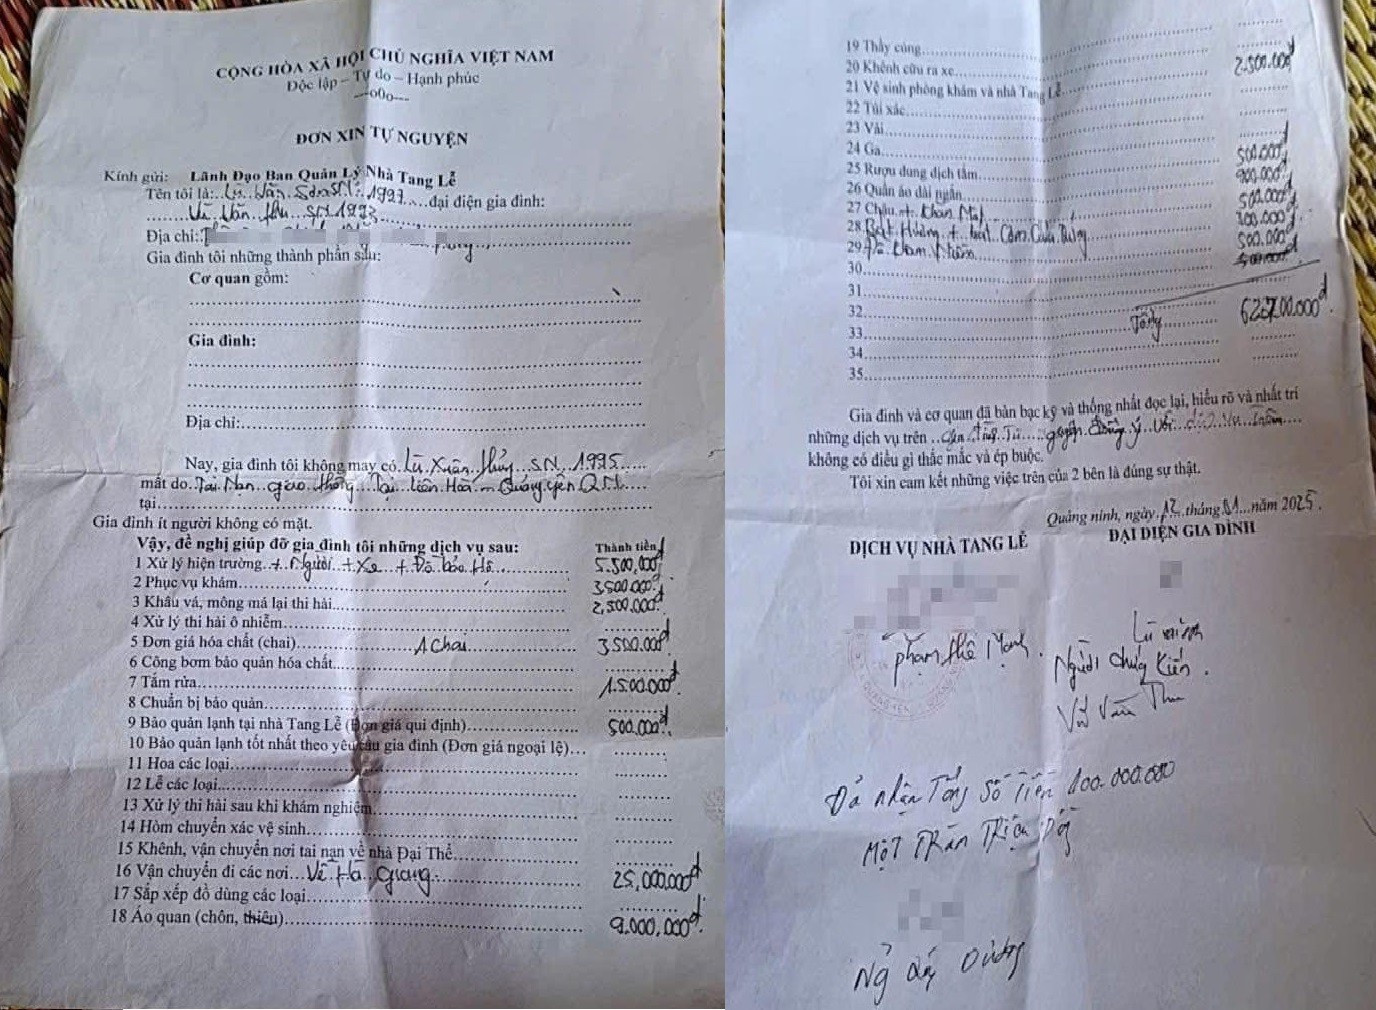 CỘNG HÒA XÃ HỘI CHỦ NGHĨA VIỆT NAM
Độc lập – Tự do – Hạnh phúc
---o0o---
ĐƠN XIN TỰ NGUYỆN
Kính gửi: Lãnh Đạo Ban Quản Lý Nhà Tang Lễ
Tên tôi là: Lù Văn Sơn SN: 1997 đại điện gia đình:
Văn Thu SN 1993
Địa chỉ:
Gia đình tôi những thành phần sau:
Cơ quan gồm:
Gia đình:
Địa chỉ:
Nay, gia đình tôi không may có Lù Xuân Thủy SN 1995
mất do Tai Nạn giao thông Tại Liên Hoà – Quảng Yên QN
tại
Gia đình ít người không có mặt.
Vậy, đề nghị giúp đỡ gia đình tôi những dịch vụ sau: Thành tiền
1 Xử lý hiện trường + Người + Xe + Đồ bảo Hộ 5.500.000đ
2 Phục vụ khám 3500.000đ
3 Khâu vá, mông má lại thi hài 2,500.000đ
4 Xử lý thi hài ô nhiễm
5 Đơn giá hóa chất (chai) 1 chai 3.500.000đ
6 Công bơm bảo quản hóa chất
7 Tắm rửa 1.500.000đ
8 Chuẩn bị bảo quản
9 Bảo quản lạnh tại nhà Tang Lễ (Đơn giá qui định) 500.000đ
10 Bảo quản lạnh tốt nhất theo yêu cầu gia đình (Đơn giá ngoại lệ)
11 Hoa các loại
12 Lễ các loại
13 Xử lý thi hài sau khi khám nghiệm
14 Hòm chuyển xác vệ sinh
15 Khênh, vận chuyển nơi tai nạn về nhà Đại Thể
16 Vận chuyển đi các nơi Về Hà Giang 25,000.000đ
17 Sắp xếp đồ dùng các loại
18 Áo quan (chôn, thiêu) 9.000,000đ
19 Thầy cúng
20 Khênh cữu ra xe 2.500.000đ
21 Vệ sinh phòng khám và nhà Tang Lễ
22 Túi xác
23 Vải
24 Ga 500.000đ
25 Rượu dung dịch tắm 900.000đ
26 Quần áo dài ngắn 500.000đ
27 Chậu + Khăn Mặt 200.000đ
28 Bát Hương + bát Cơm Quả Trứng 500.000đ
29
30
31
32
33 Tổng 62.700.000đ
34
35
Gia đình và cơ quan đã bàn bạc kỹ và thống nhất đọc lại, hiểu rõ và nhất trí
những dịch vụ trên
không có điều gì thắc mắc và ép buộc.
Tôi xin cam kết những việc trên của 2 bên là đúng sự thật.
Quảng ninh, ngày 12 tháng 01 năm 2025.
DỊCH VỤ NHÀ TANG LỄ
ĐẠI DIỆN GIA ĐÌNH
phạm thế Mạnh
Lù Minh
Người chứng kiến.
Văn Thu
Đã nhận Tổng số Tiền 100.000.000
Một Trăm Triệu
Dương